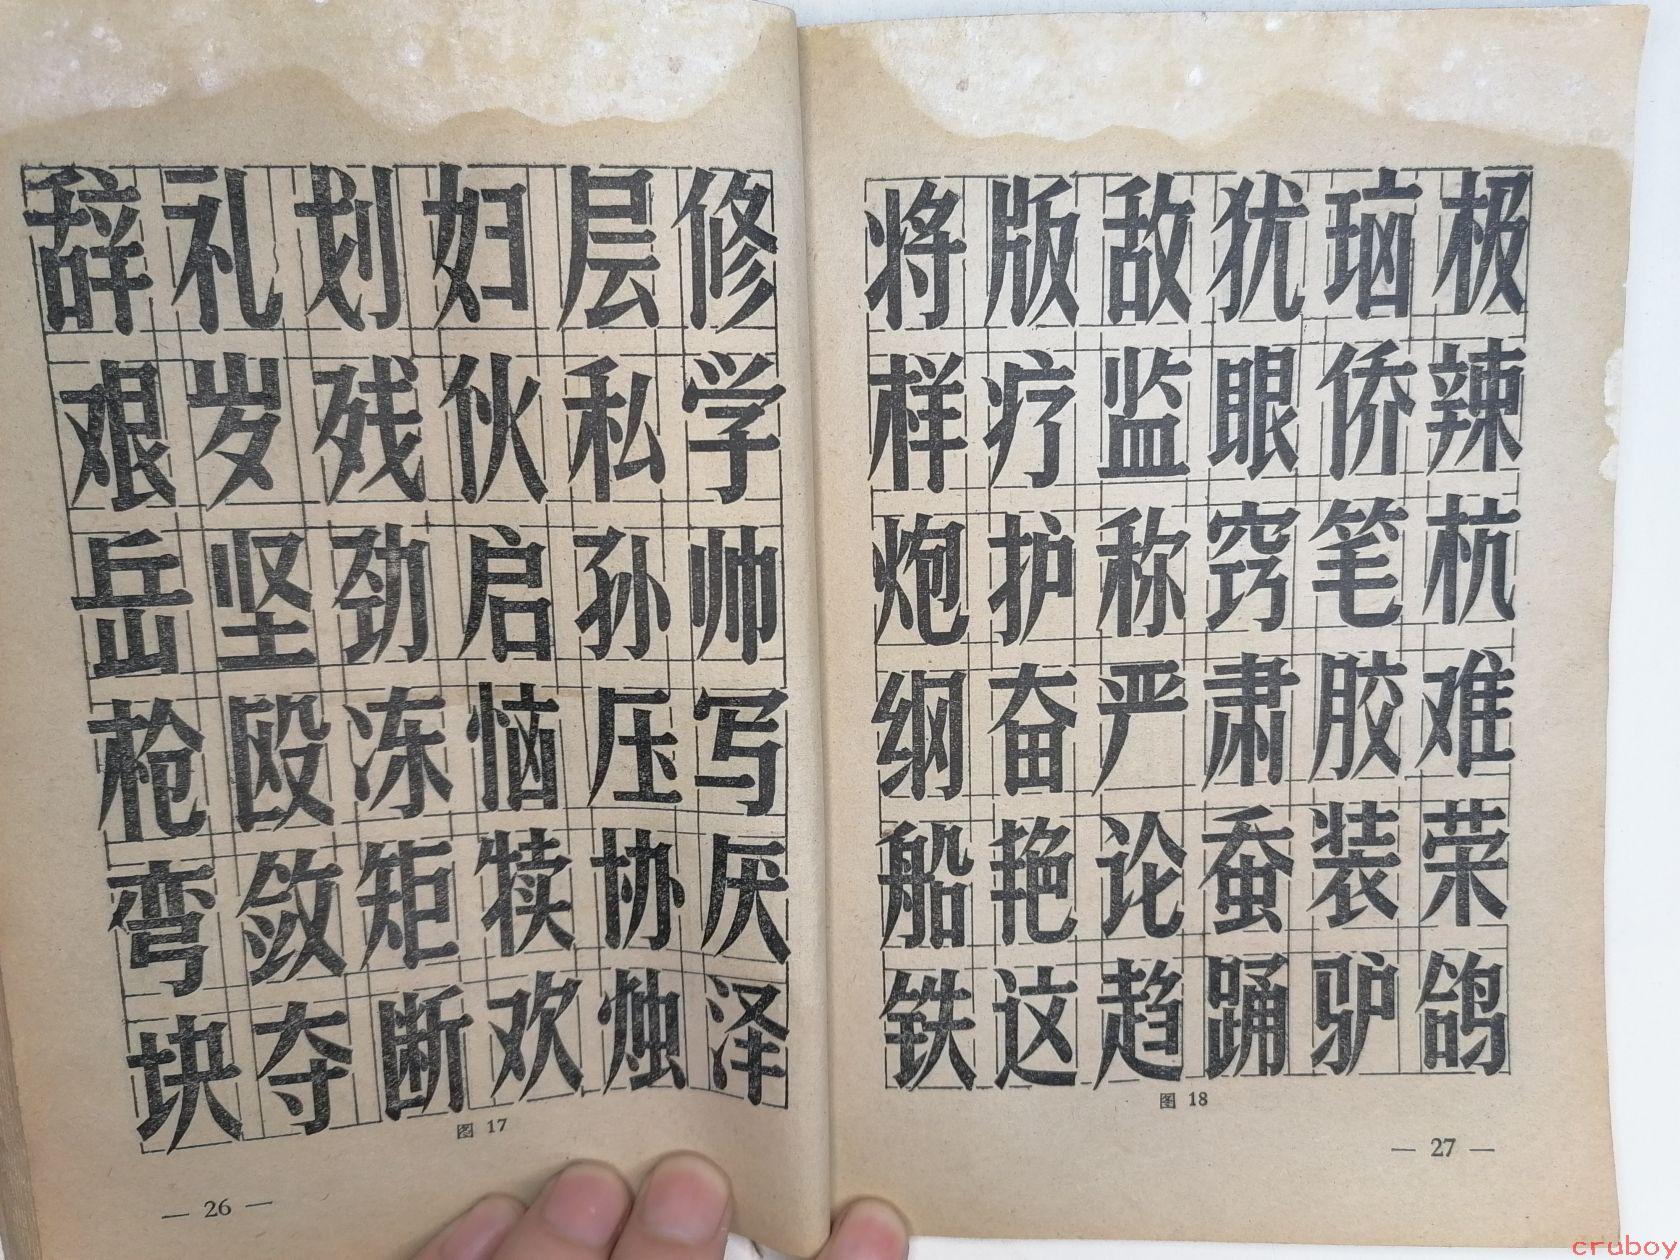 辞礼划妇层修
艰岁残伙私学
岳坚劲启孙帅
枪殴冻恼压写
弯敛矩犊协厌
块夺断欢烛泽
图 17
— 26 —
将版敌犹极
样疗监眼侨辣
炮护称窍笔杭
纲奋严肃胶难
船艳论蚕装荣
铁这趋踊驴鸽
图 18
— 27 —
cruboy